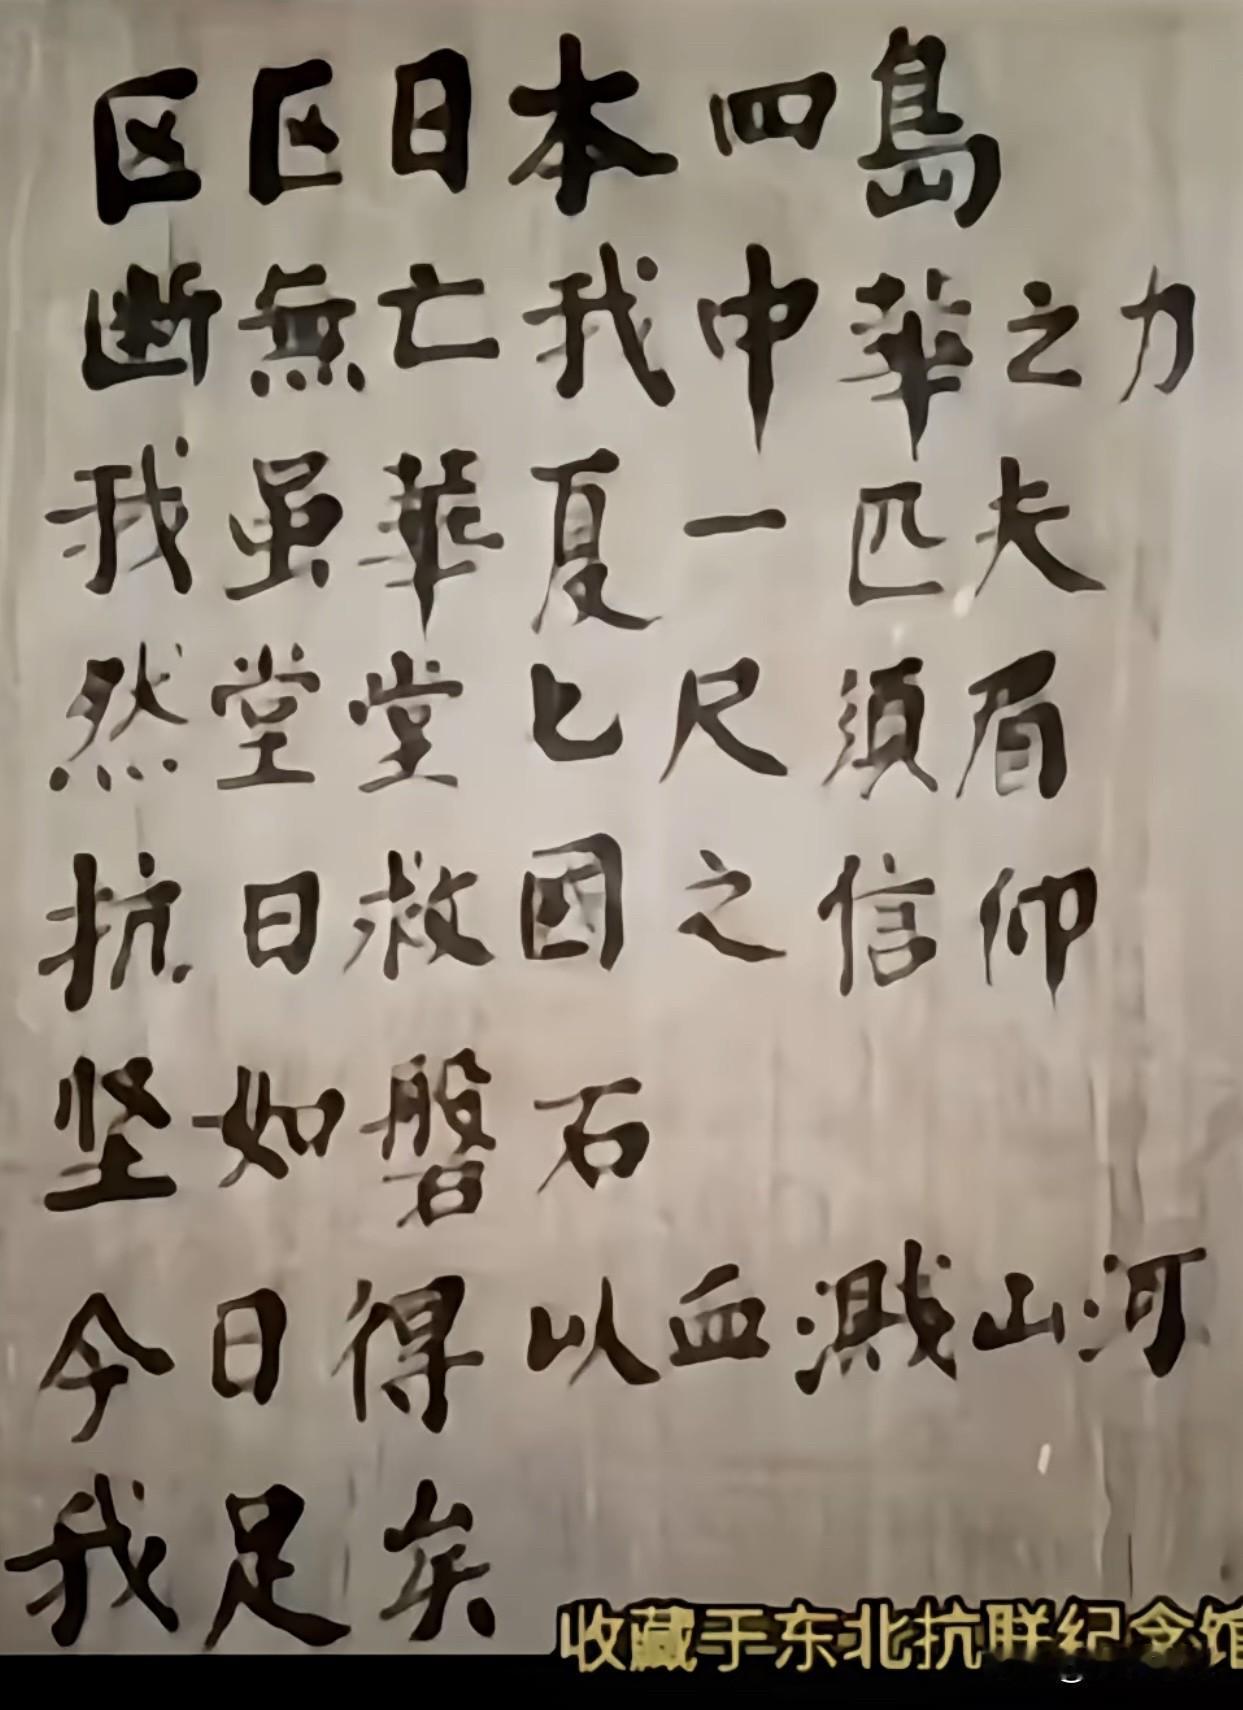 区区日本四島
断無亡我中華之力
我虽華夏一匹夫
然堂堂七尺須眉
抗日救國之信仰
坚如磐石
今日得以血濺山河
我足矣
收藏于东北抗联纪念馆